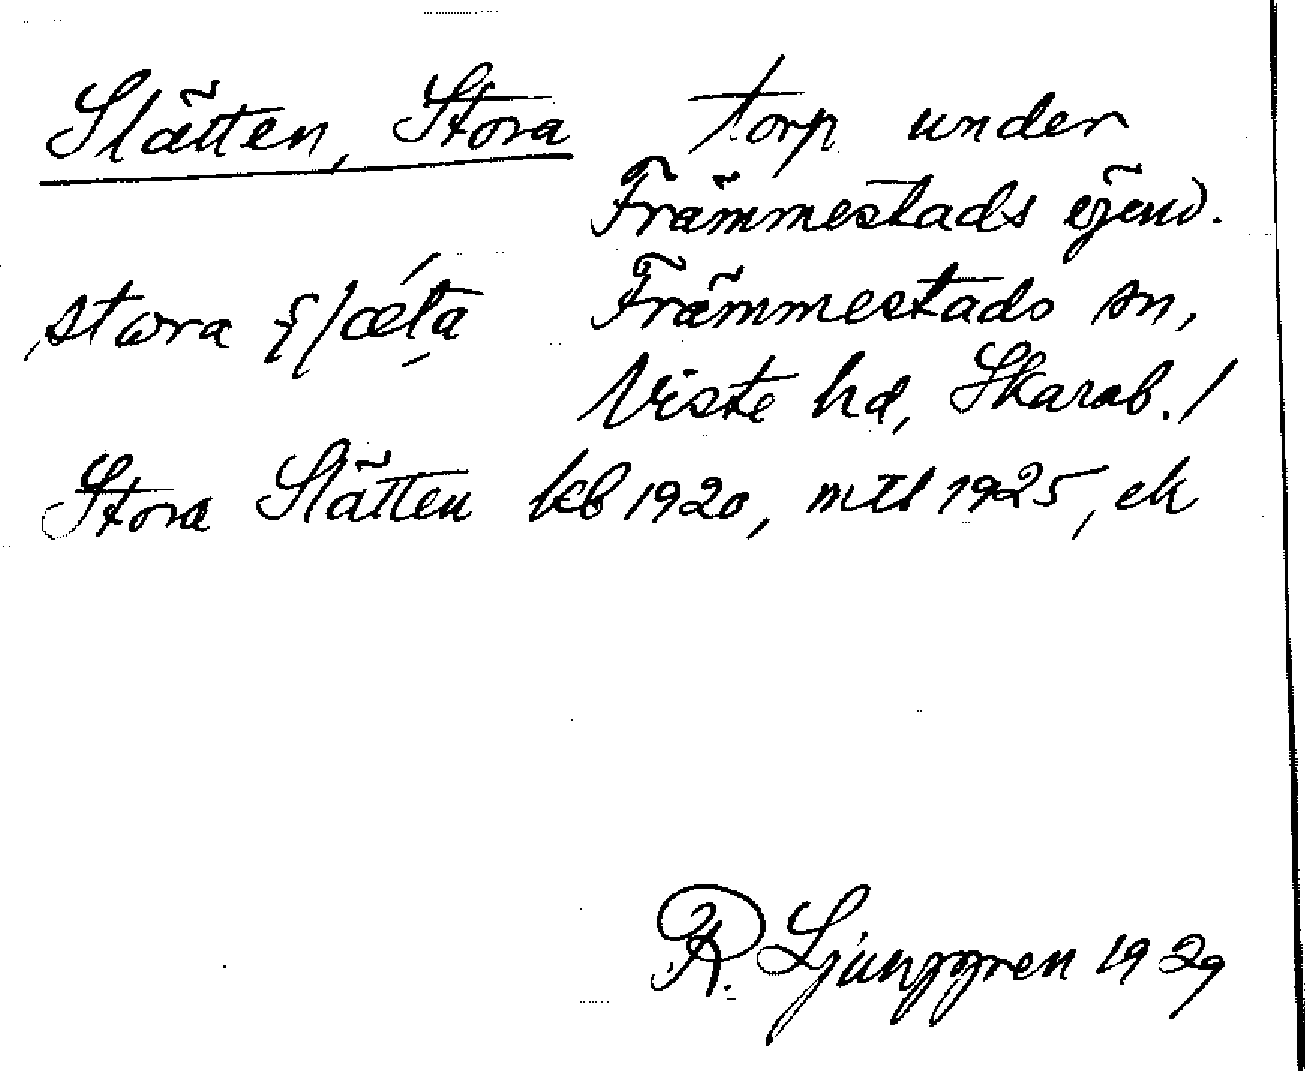 Slätten, Stora torp under
Främmestads egend.
stora Främmestads sn,
Viste hd, Skarab. l
Stora Slätten kb 1920, mtl 1925, ek
R. Ljunggren 1929